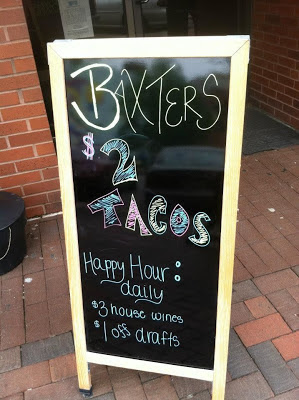 BAXTERS
$2
TACOS
Happy Hour:
daily
$3 house wines
$1 off drafts